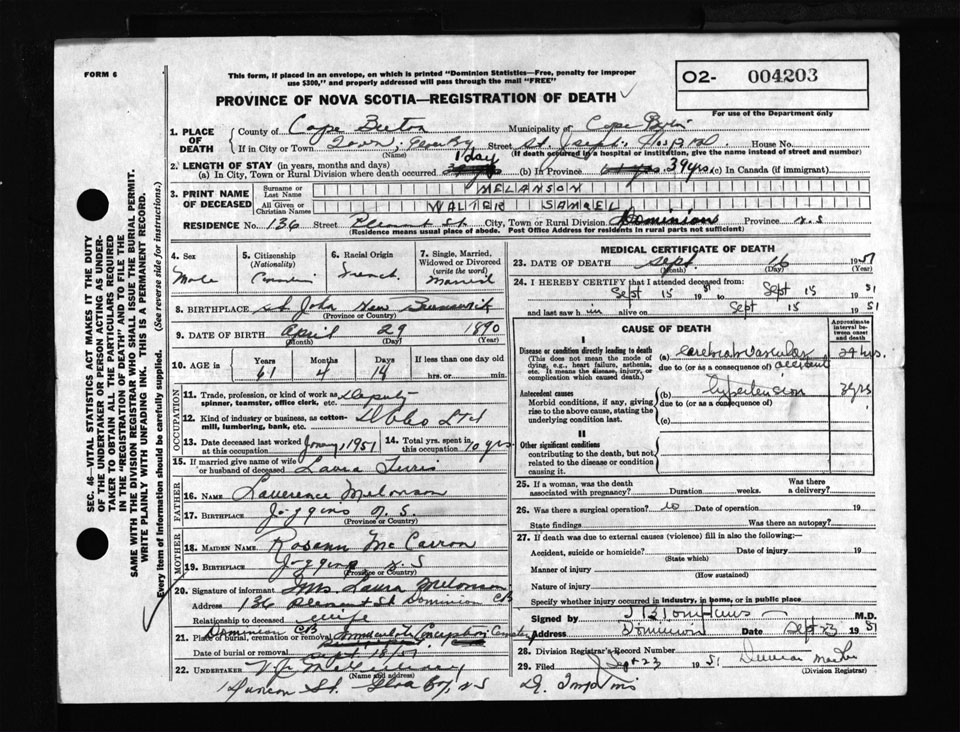 FORM 6
This form, if placed in an envelope, on which is printed "Dominion Statistics—Free, penalty for improper
use $300," and properly addressed will pass through the mail "FREE"
O2- 004203
For use of the Department only
PROVINCE OF NOVA SCOTIA—REGISTRATION OF DEATH
SEC. 46—VITAL STATISTICS ACT MAKES IT THE DUTY
OF THE UNDERTAKER OR PERSON ACTING AS UNDER-
TAKER TO OBTAIN ALL THE PARTICULARS REQUIRED
IN THE "REGISTRATION OF DEATH" AND TO FILE THE
SAME WITH THE DIVISION REGISTRAR WHO SHALL ISSUE THE BURIAL PERMIT.
WRITE PLAINLY WITH UNFADING INK. THIS IS A PERMANENT RECORD.
Every item of information should be carefully supplied. (See reverse side for instructions.)
1. PLACE OF DEATH
County of Cape Breton Municipality of Cape Breton
If in City or Town Town, Glace Bay (Name) Street St. Joseph's Hospital House No.
(If death occurred in a hospital or institution, give the name instead of street and number)
2. LENGTH OF STAY (in years, months and days)
(a) In City, Town or Rural Division where death occurred 1 day (b) In Province 39 yrs. (c) In Canada (if immigrant)
3. PRINT NAME OF DECEASED
Surname or Last Name MELANSON
All Given or Christian Names WALTER SAMUEL
RESIDENCE No. 136 Street Pleasant St City, Town or Rural Division Dominion Province N.S
(Residence means usual place of abode. Post Office Address for residents in rural parts not sufficient)
4. Sex Male
5. Citizenship (Nationality) Canadian
6. Racial Origin French
7. Single, Married, Widowed or Divorced (write the word) Married
8. BIRTHPLACE St. John New Brunswick
(Province or Country)
9. DATE OF BIRTH April 29 1890
(Month) (Day) (Year)
10. AGE Years 61 Months 4 Days 14 If less than one day old
hrs. or min.
OCCUPATION
11. Trade, profession, or kind of work as spinner, teamster, office clerk, etc. Deputy
12. Kind of industry or business, as cotton-mill, lumbering, bank, etc.
13. Date deceased last worked at this occupation 1951 14. Total yrs. spent in this occupation 10 yrs
15. If married give name of wife or husband of deceased Laura
FATHER
16. Name Lawerence Melanson
17. BIRTHPLACE Joggins N.S.
(Province or Country)
MOTHER
18. MAIDEN NAME Rosann McCarron
19. BIRTHPLACE Joggins N.S
(Province or Country)
20. Signature of informant Mrs. Laura Melanson
Address 136 Pleasant St Dominion CB
Relationship to deceased wife
Dominion CB
21. Place of burial, cremation or removal Immaculate Conception Cemetery
Date of burial or removal Sept 18/51
22. UNDERTAKER
(Name and Address)
St. Glace Bay, NS
MEDICAL CERTIFICATE OF DEATH
23. DATE OF DEATH Sept. 16 1951
(Month) (Day) (Year)
24. I HEREBY CERTIFY that I attended deceased from:
Sept 15 1951 to Sept 15 1951
and last saw him alive on Sept 15 1951
CAUSE OF DEATH
Approximate interval between onset and death
I
Disease or condition directly leading to death
(This does not mean the mode of dying, e.g., heart failure, asthenia, etc. It means the disease, injury, or complication which caused death.)
(a) cerebral vascular accident 24 hrs.
due to (or as a consequence of)
Antecedent causes
Morbid conditions, if any, giving rise to the above cause, stating the underlying condition last.
(b) hypertension 3 yrs
due to (or as a consequence of)
(c)
II
Other significant conditions
contributing to the death, but not related to the disease or condition causing it.
25. If a woman, was the death associated with pregnancy? Duration weeks. Was there a delivery?
26. Was there a surgical operation? no Date of operation 19
State findings Was there an autopsy?
27. If death was due to external causes (violence) fill in also the following:—
Accident, suicide or homicide? Date of injury 19
(State which)
Manner of injury
(How sustained)
Nature of injury
Specify whether injury occurred in industry, in home, or in public place
Signed by M.D.
Address Dominion Date Sept 23 1951
28. Division Registrar's Record Number
29. Filed Sept 23 1951
(Division Registrar)